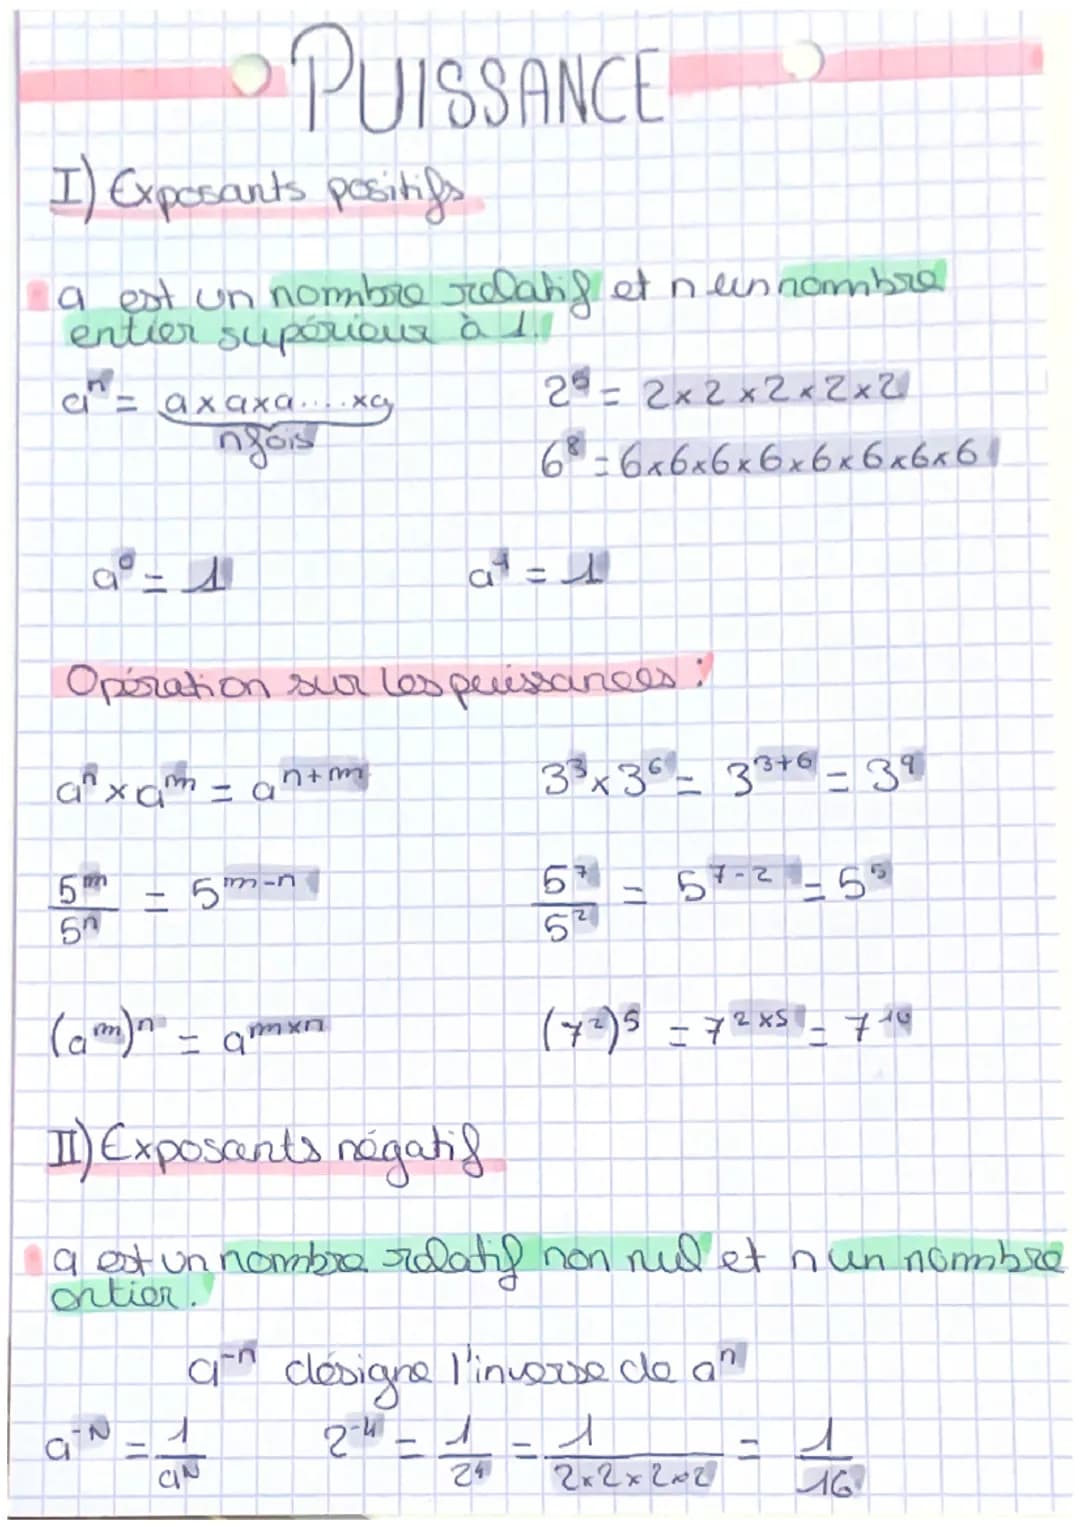 PUISSANCE
I) Exposants positifs
a est un nombre relatif et n un nombre
entier supérieur à 1.
aⁿ = a×a×a....×a
n fois
2⁵ = 2×2×2×2×2
6⁸ = 6×6×6×6×6×6×6×6
a⁰ = 1    a¹ = 1
Opération sur les puissances :
aⁿ × aᵐ = aⁿ⁺ᵐ    3³×3⁶ = 3³⁺⁶ = 3⁹
5ᵐ/5ⁿ = 5ᵐ⁻ⁿ    5⁷/5² = 5⁷⁻² = 5⁵
(aᵐ)ⁿ = aᵐˣⁿ    (7²)⁵ = 7²ˣ⁵ = 7¹⁰
II) Exposants négatif
a est un nombre relatif non nul et n un nombre
entier.
a⁻ⁿ désigne l'inverse de aⁿ
a⁻ᴺ = 1/aᴺ    2⁻⁴ = 1/2⁴ = 1/2×2×2×2 = 1/16